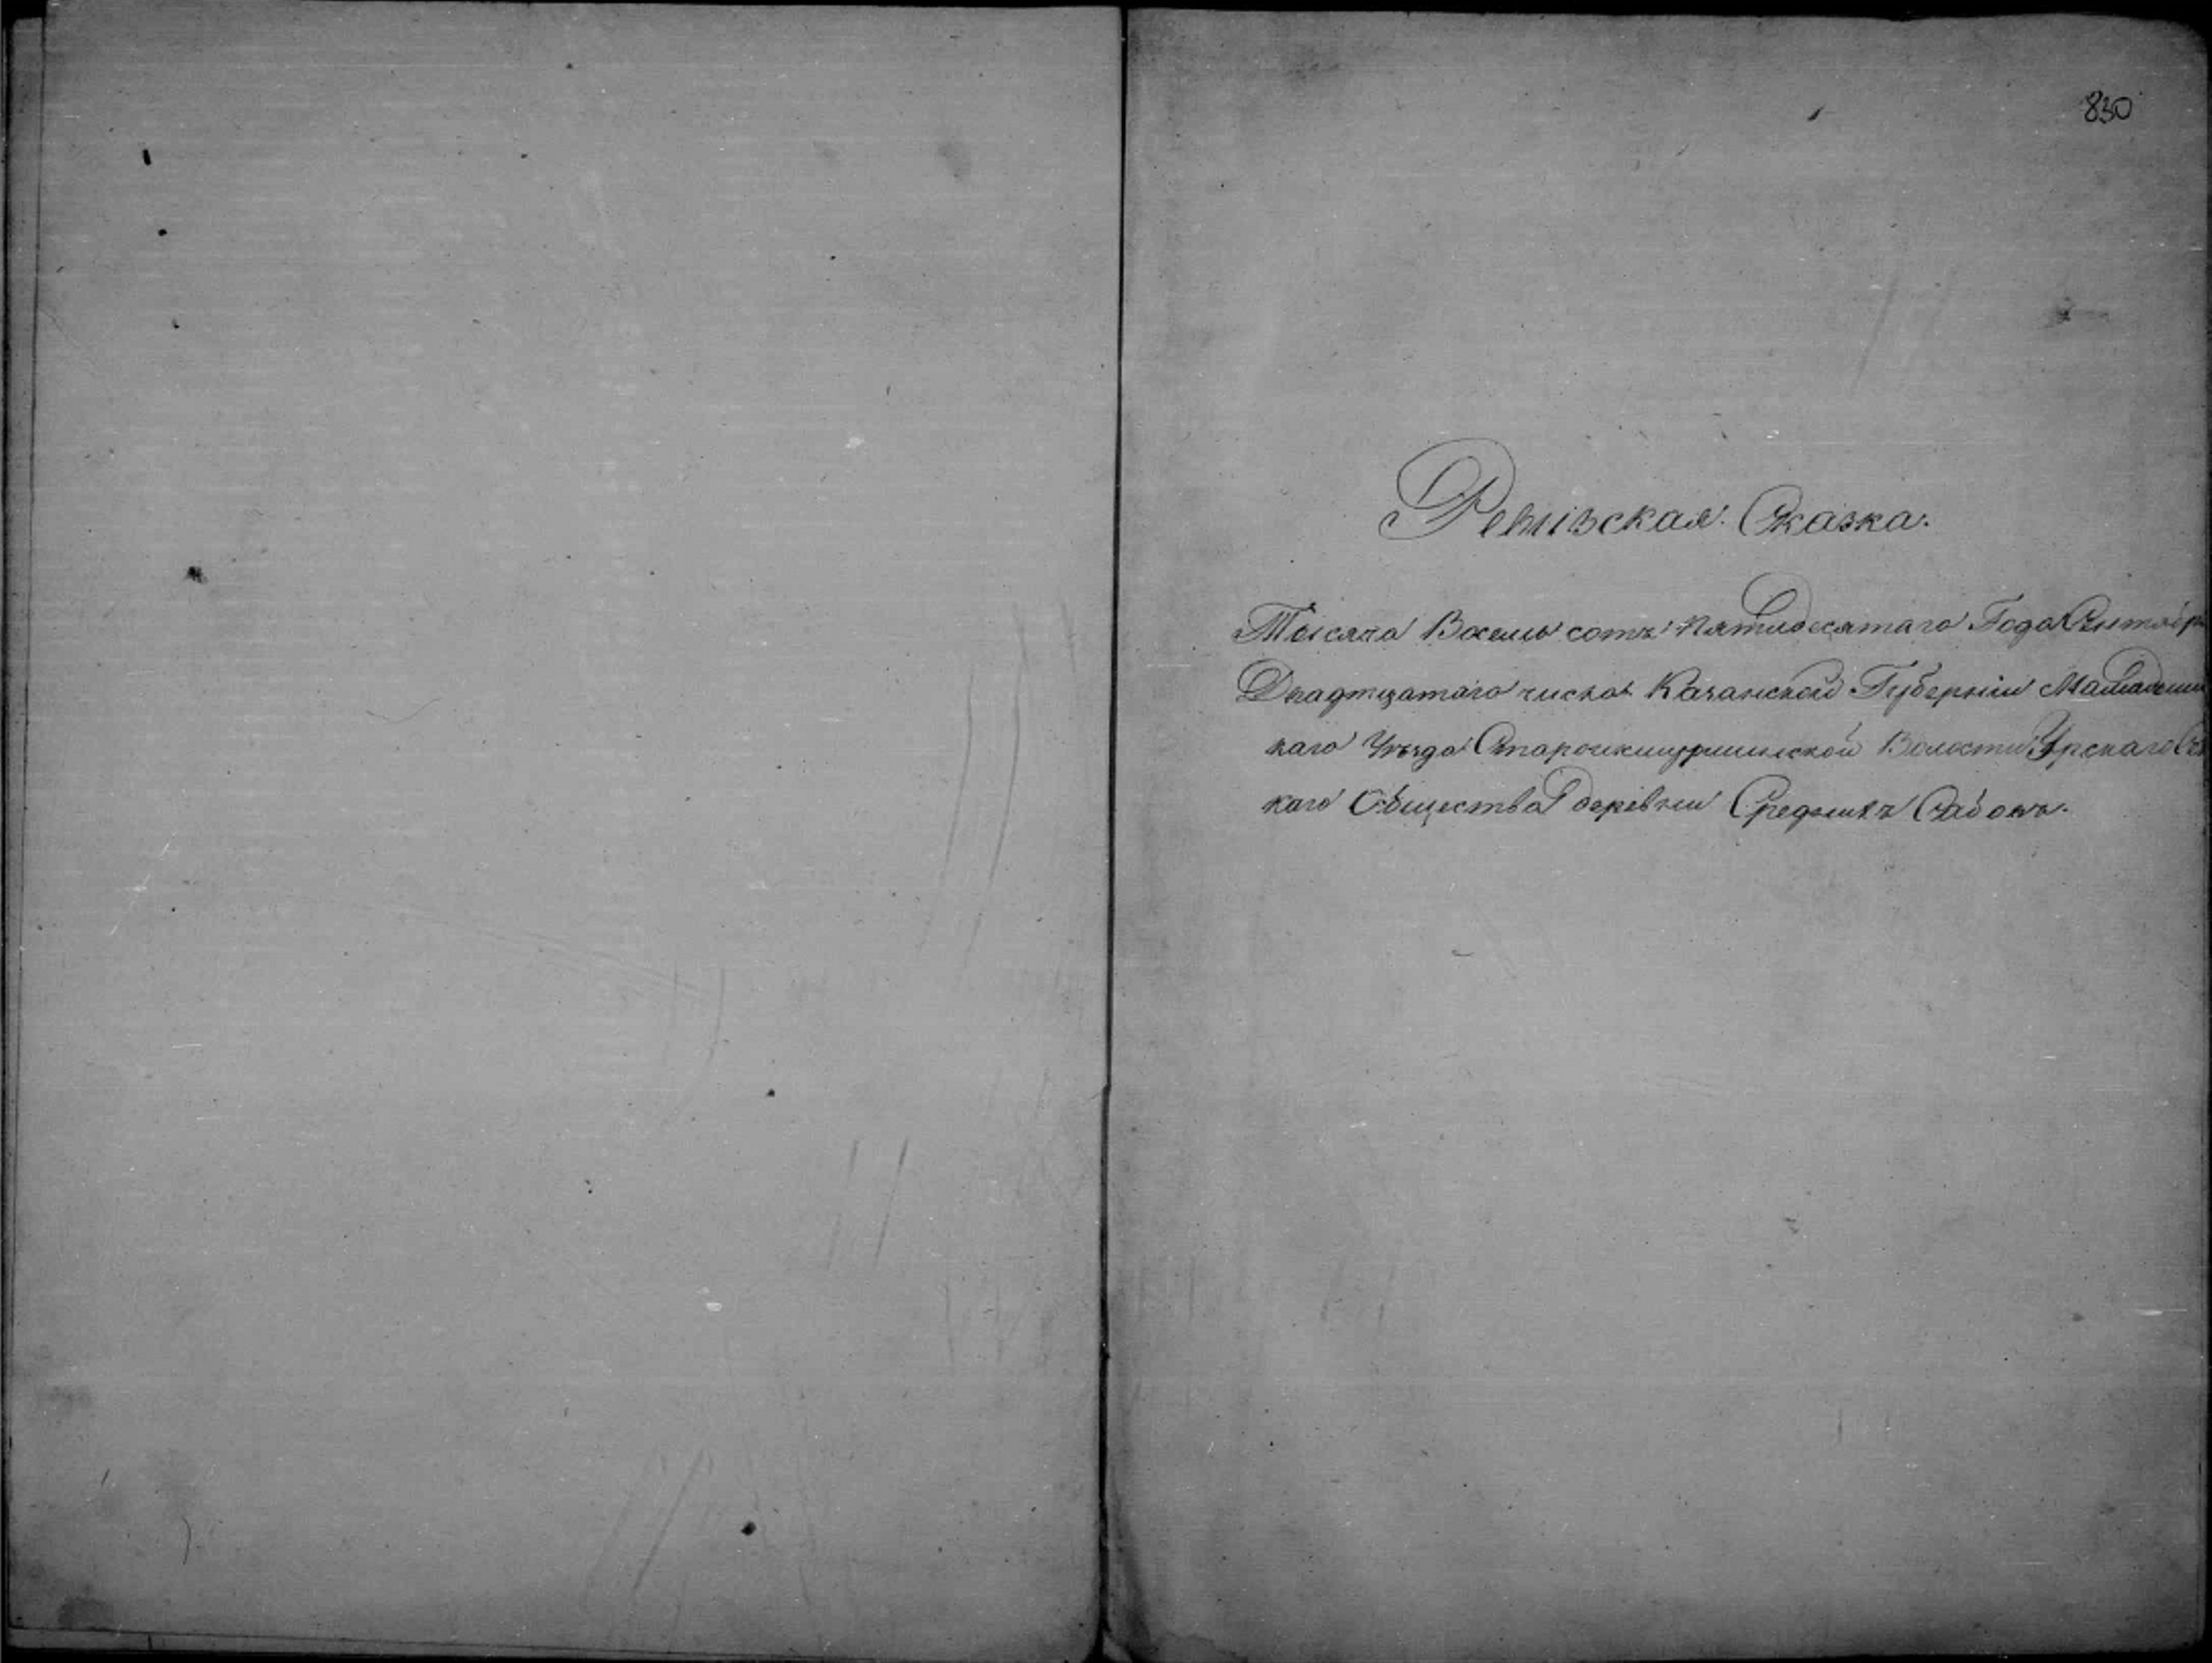 830
Ревизская Сказка.
Тысяча Восемь сотъ пятидесятаго Года Сентябр
Двадтцатаго числа Казанской Губерніи Мамадыш
каго Уѣзда Волости Урскаго
каго Общества деревни Среднихъ Сабовъ.